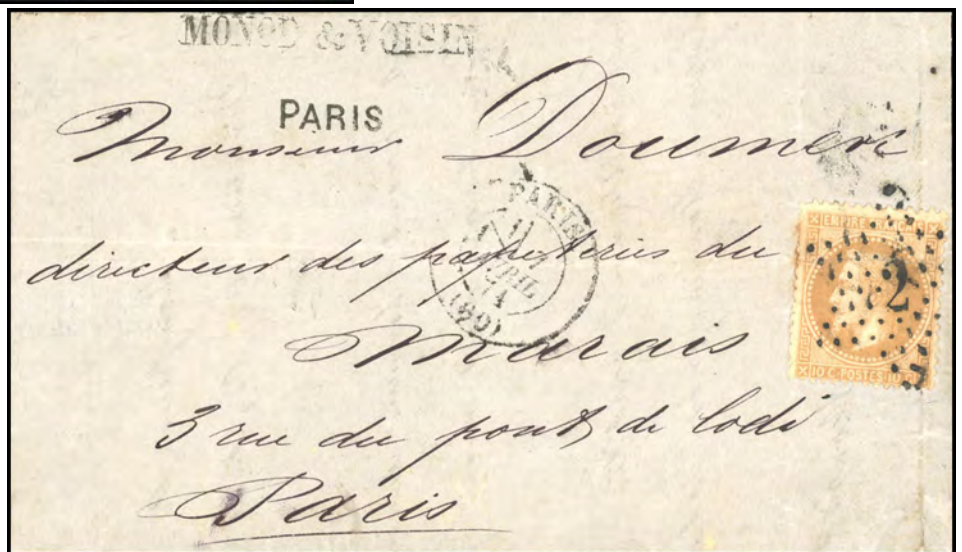 MONOD & VOISIN
PARIS
Monsieur Doumerc
directeur des papeteries du
Marais
3 rue du pont de lodi
Paris
PARIS
AVRIL
71
(60)
EMPIRE FRANÇAIS
2
10 C. POSTES 10 C.